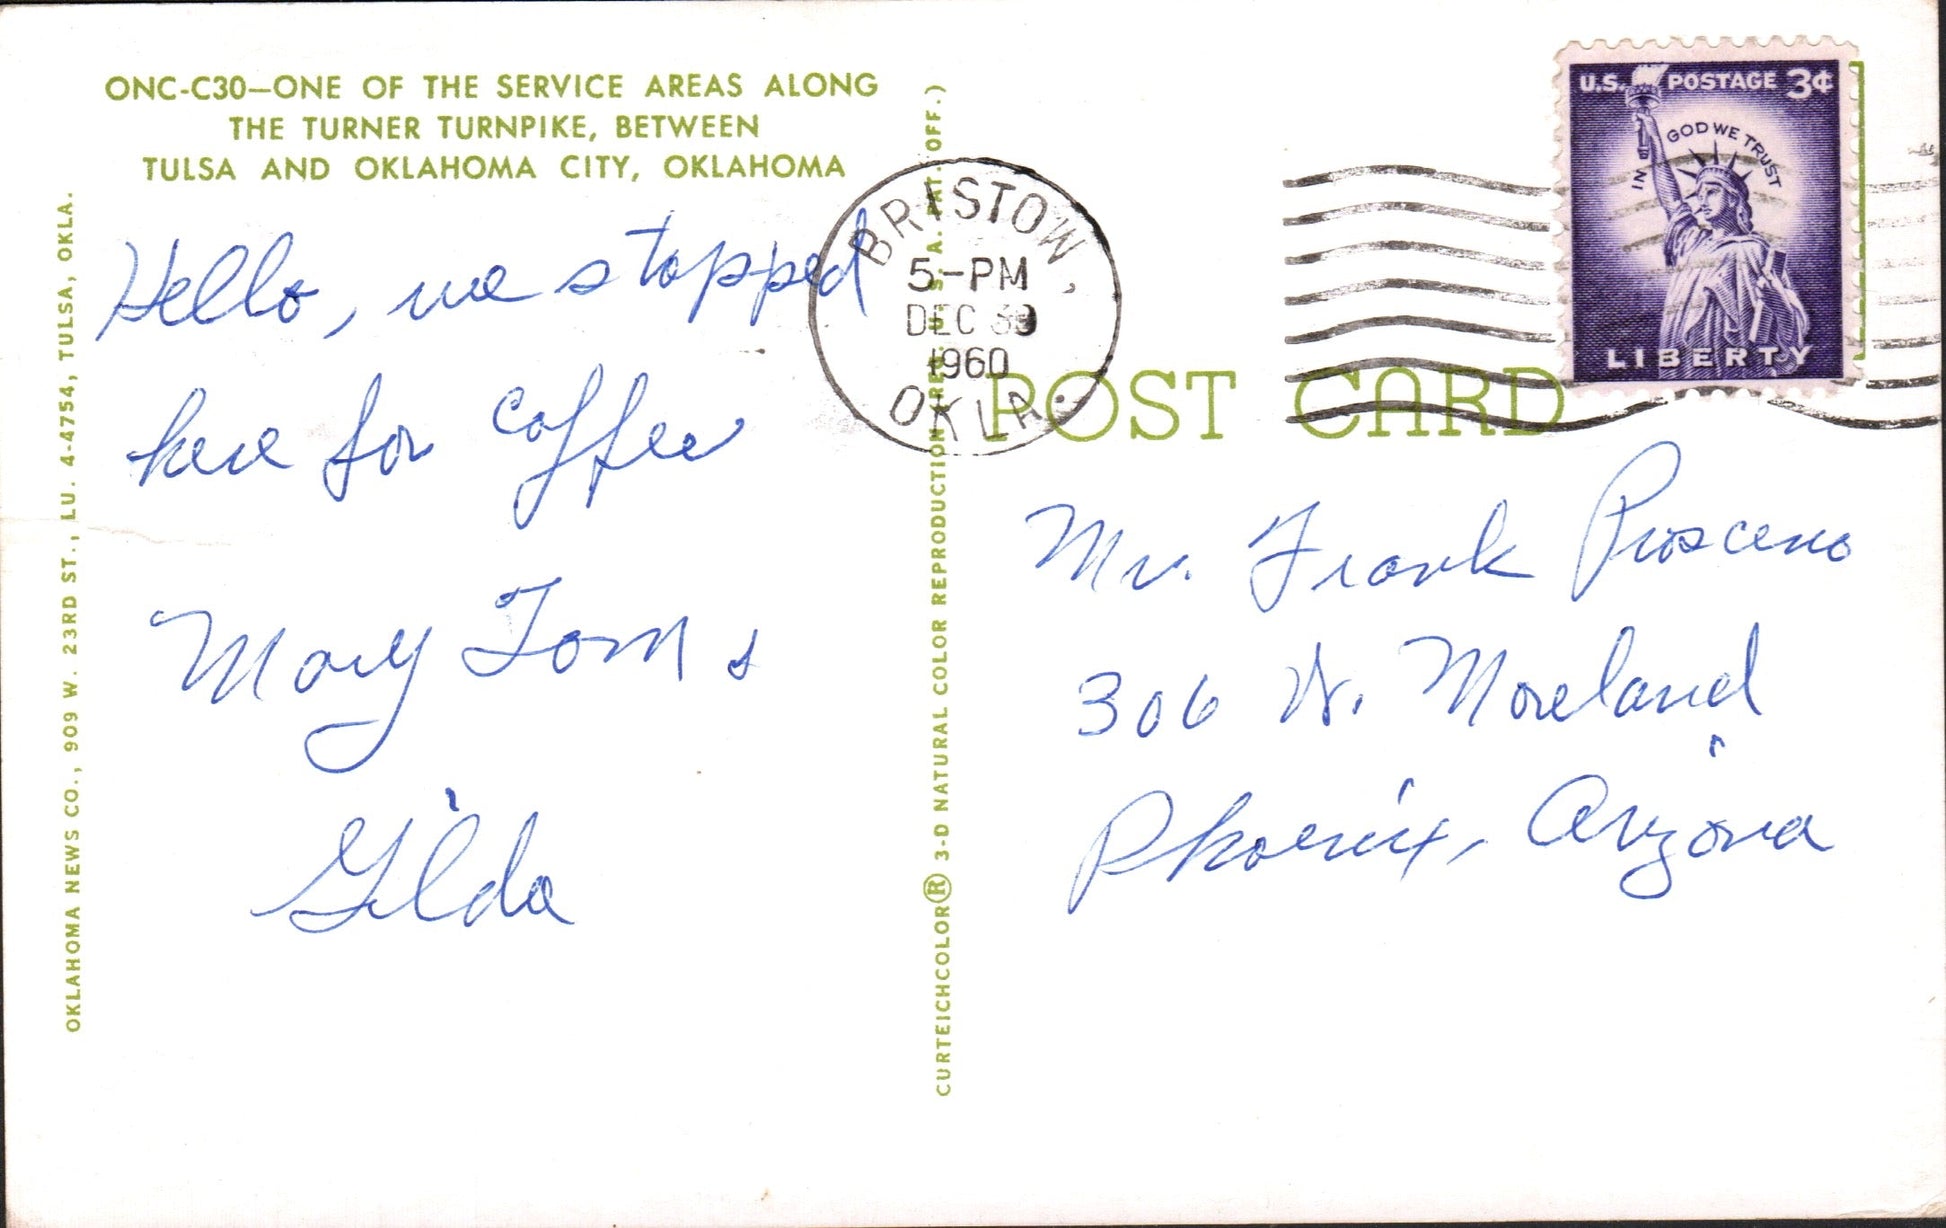 ONC-C30—ONE OF THE SERVICE AREAS ALONG
THE TURNER TURNPIKE, BETWEEN
TULSA AND OKLAHOMA CITY, OKLAHOMA
Hello, we stopped
here for coffee
Mary Tom &
Gilda
OKLAHOMA NEWS CO., 909 W. 23RD ST., LU. 4-4754, TULSA, OKLA.
CURTEICHCOLOR® 3-D NATURAL COLOR REPRODUCTION (REG. U.S.A. PAT. OFF.)
BRISTOW,
5-PM
DEC
1960
OKLA.
U.S. POSTAGE 3¢
IN GOD WE TRUST
LIBERTY
POST CARD
Mr. Frank
306 W. Moreland
Phoenix, Arizona